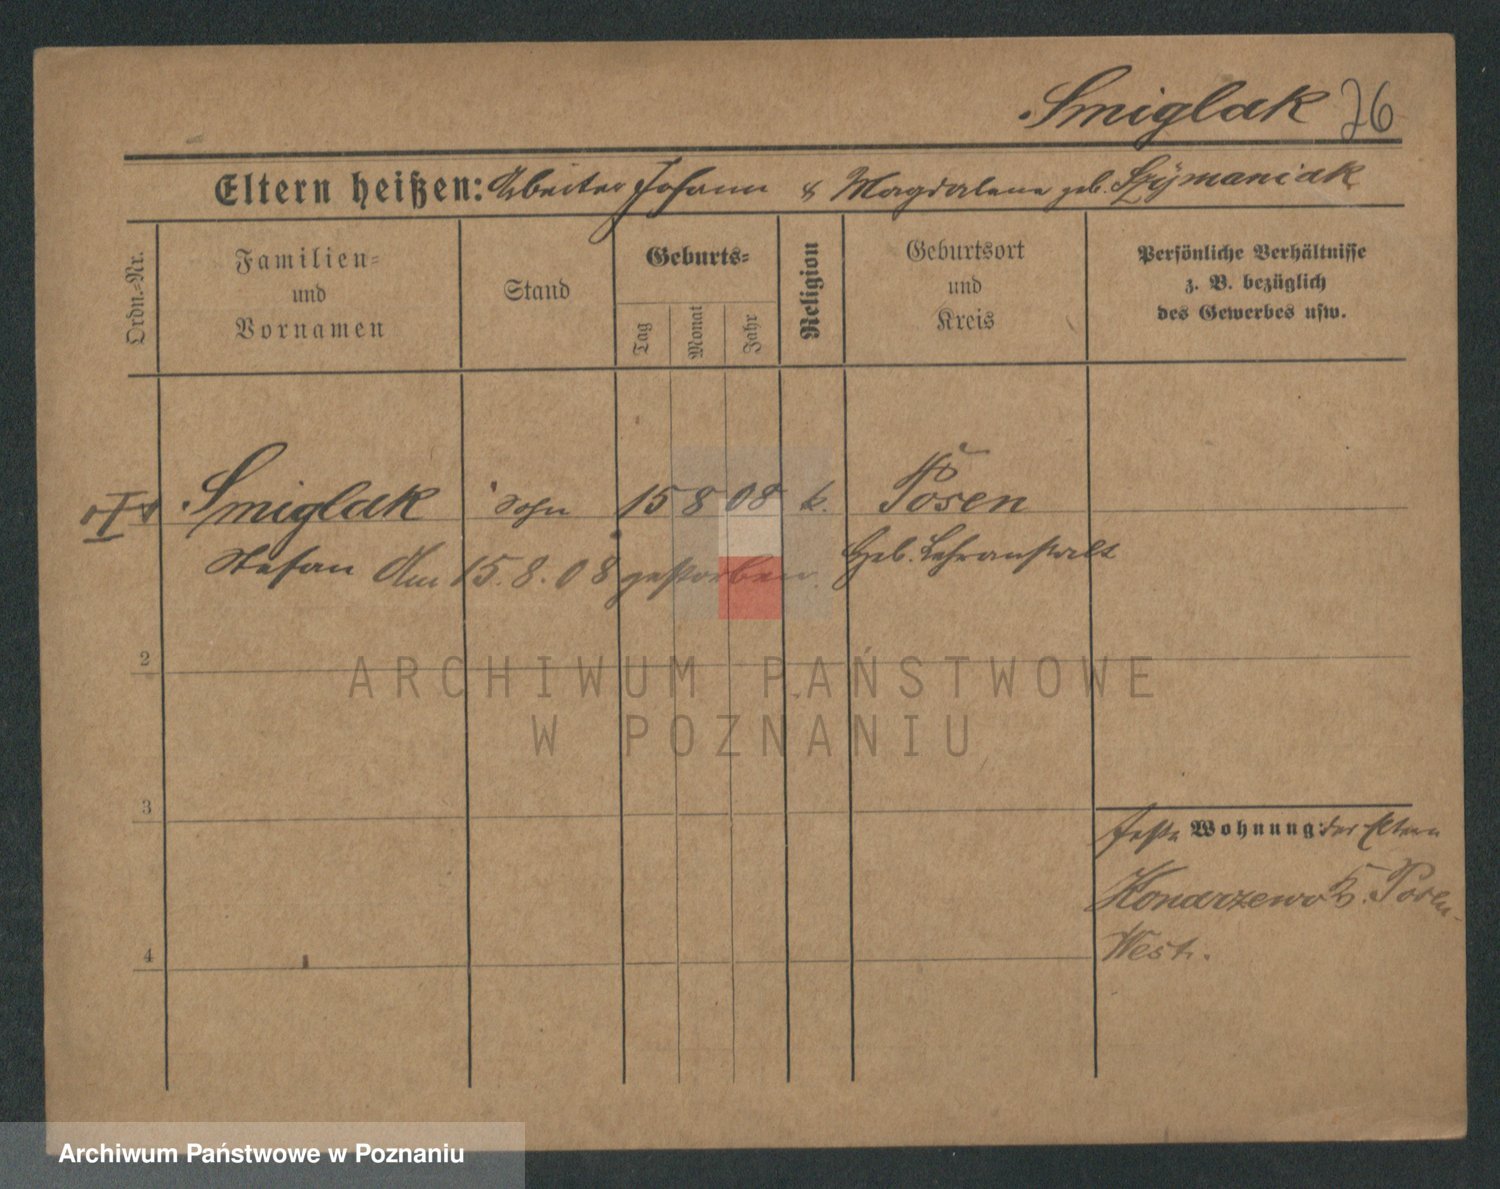 Smiglak 76
Eltern heißen: Arbeiter Johann & Magdalene geb. Szÿmaniak
Ordn.-Nr.
Familien- und Vornamen
Stand
Geburts-
Tag Monat Jahr
Religion
Geburtsort und Kreis
Persönliche Verhältnisse
z. B. bezüglich
des Gewerbes usw.
Smiglak Sohn 15 8 08 k. Posen
Stefan Am 15.8.08 gestorben. Heb. Lehranstalt
2
3
feste Wohnung: der Eltern
Konarzewo K. Posen-
West.
4
ARCHIWUM PAŃSTWOWE
W POZNANIU
Archiwum Państwowe w Poznaniu